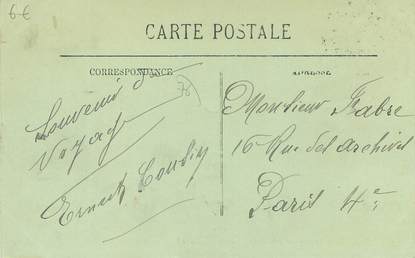 6€
CARTE POSTALE
CORRESPONDANCE
ADRESSE
Souvenir de
Voyage
Ernest
76
Monsieur Fabre
16 Rue des archives
Paris 4e